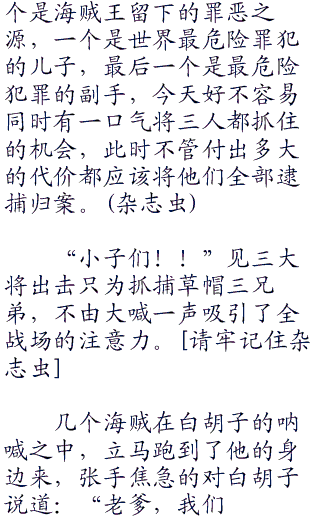 个是海贼王留下的罪恶之
源，一个是世界最危险罪犯
的儿子，最后一个是最危险
犯罪的副手，今天好不容易
同时有一口气将三人都抓住
的机会，此时不管付出多大
的代价都应该将他们全部逮
捕归案。(杂志虫)
“小子们！！”见三大
将出击只为抓捕草帽三兄
弟，不由大喊一声吸引了全
战场的注意力。[请牢记住杂
志虫]
几个海贼在白胡子的呐
喊之中，立马跑到了他的身
边来，张手焦急的对白胡子
说道：“老爹，我们